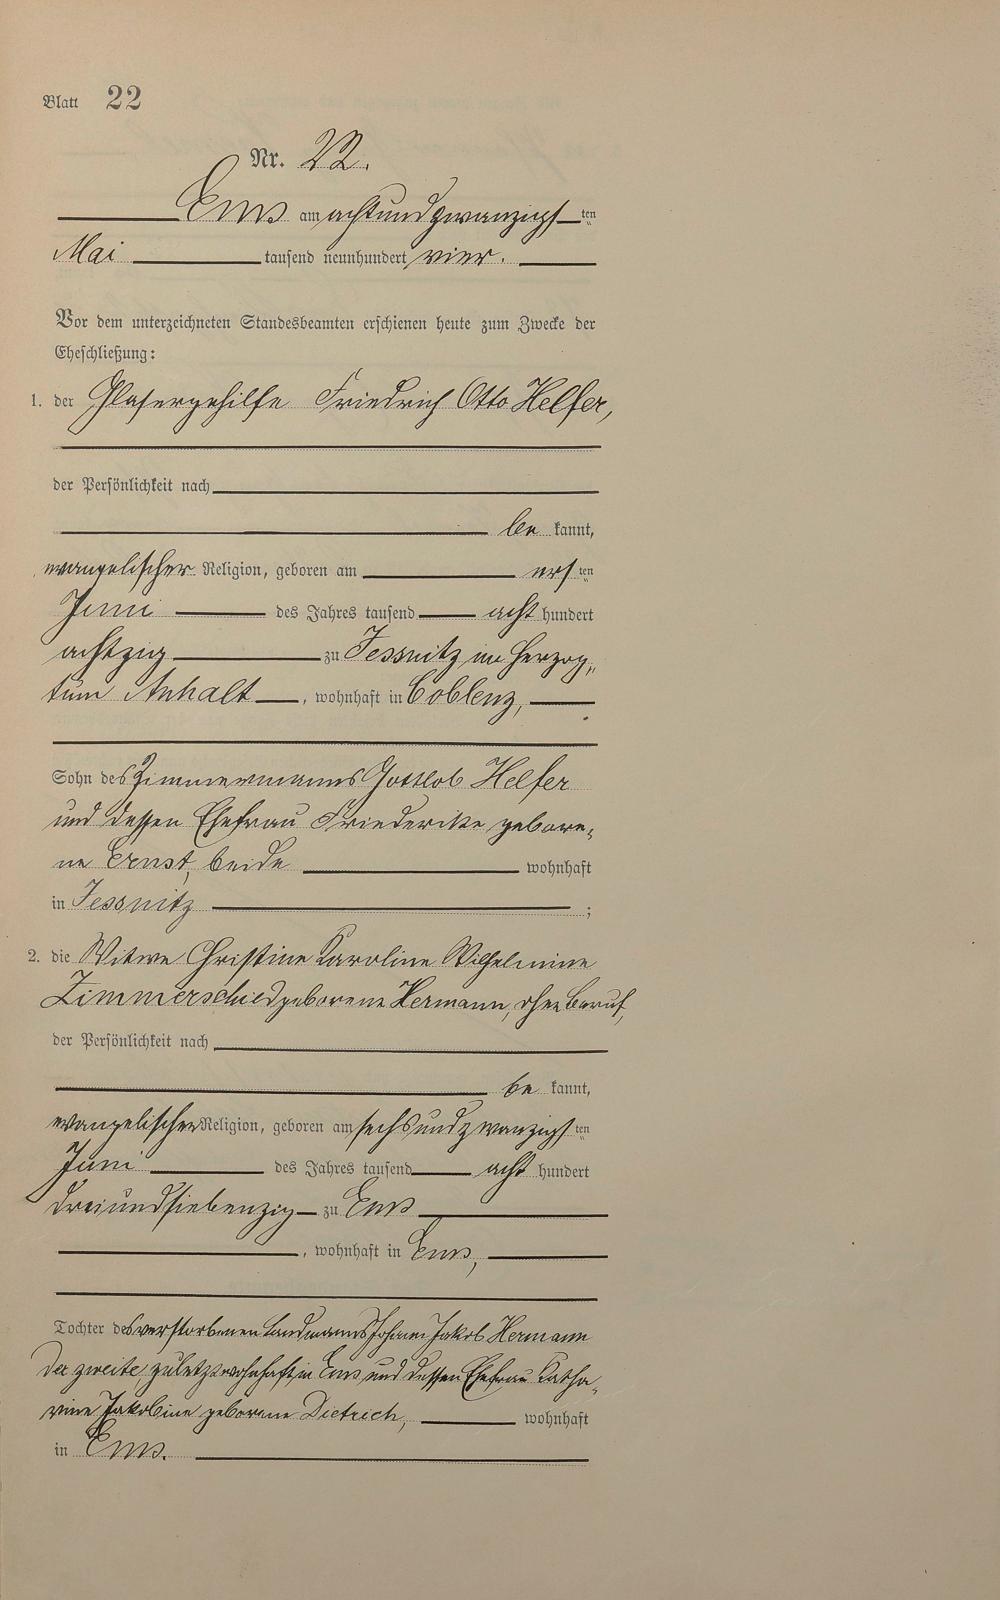 Blatt 22
Nr. 22.
Ems am achtundzwanzigsten
Mai tausend neunhundert vier.
Vor dem unterzeichneten Standesbeamten erschienen heute zum Zwecke der
Eheschließung:
1. der Glasergehilfe Friedrich Otto Helfer,
der Persönlichkeit nach
be kannt,
evangelischer Religion, geboren am ersten
Juni des Jahres tausend acht hundert
achtzig zu Jessnitz im Herzog-
tum Anhalt, wohnhaft in Coblenz,
Sohn des Zimmermanns Gottlob Helfer
und dessen Ehefrau Friedericke gebore-
ne Ernst, beide wohnhaft
in Jessnitz ;
2. die Witwe Christine Karoline Wilhelmine
Zimmerschied geborene Hermann, ohne Beruf,
der Persönlichkeit nach
be kannt,
evangelischer Religion, geboren am sechsundzwanzigsten
Juni des Jahres tausend acht hundert
dreiundsiebenzig zu Ems
, wohnhaft in Ems,
Tochter des verstorbenen Landmanns Johann Jakob Hermann
der zweite, zuletzt wohnhaft in Ems und dessen Ehefrau Katha-
rine Jakobine geborene Dietrich, wohnhaft
in Ems.